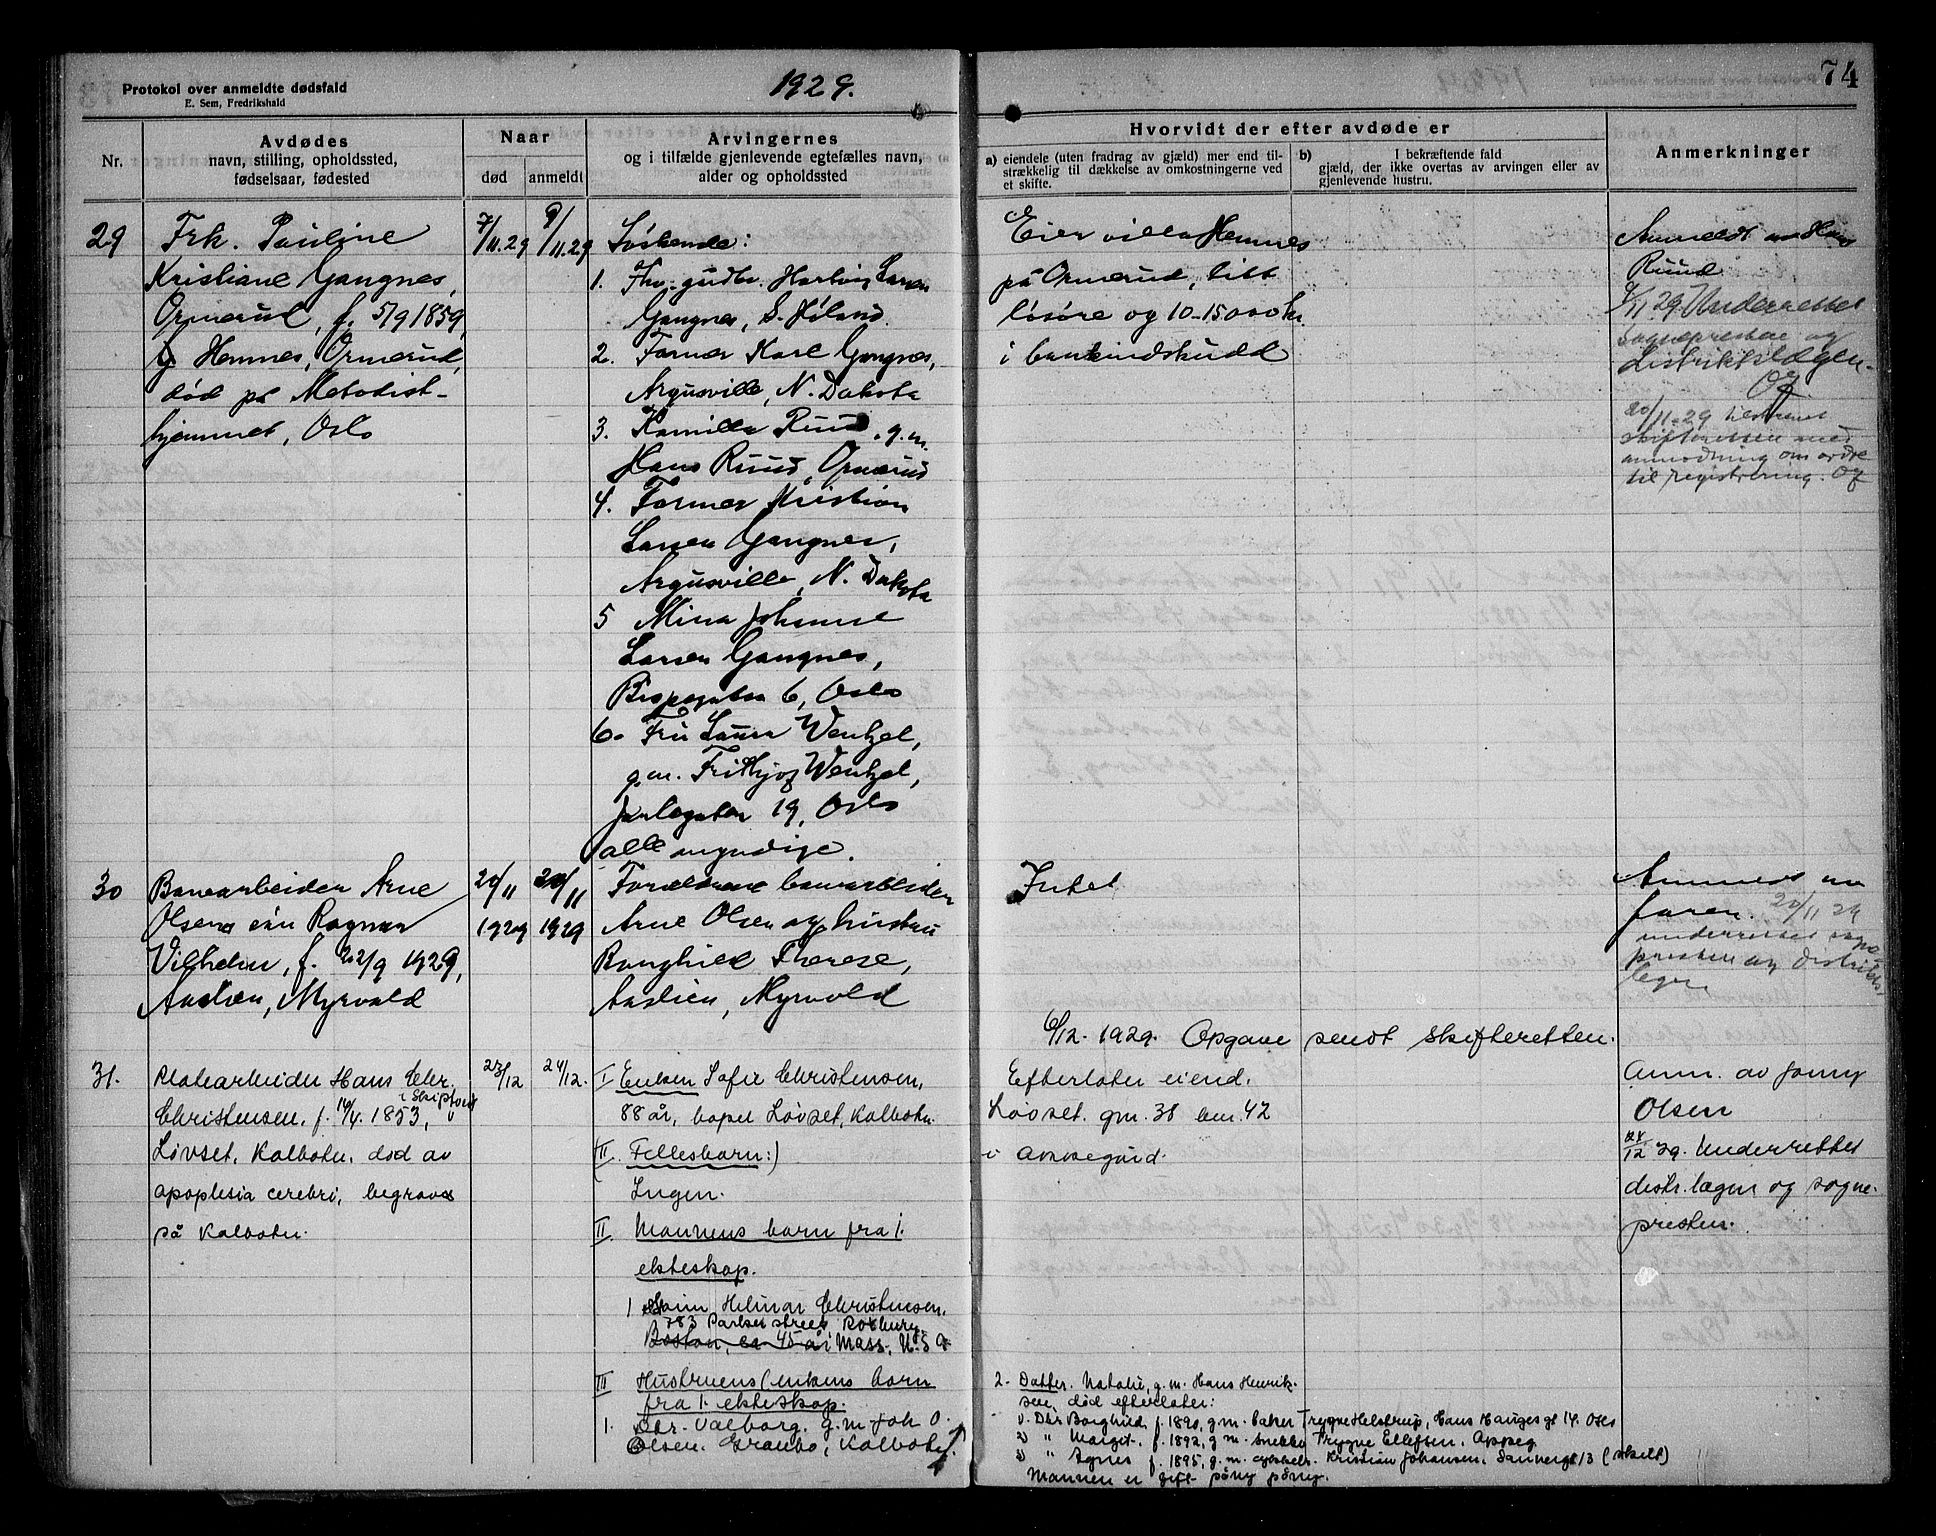 Protokol over anmeldte dødsfald
E. Sem, Fredrikshald
1929.
74
Nr.
Avdødes
navn, stilling, opholdssted,
fødselsaar, fødested
Naar
død
anmeldt
Arvingernes
og i tilfælde gjenlevende egtefælles navn,
alder og opholdssted
Hvorvidt der efter avdøde er
a) eiendele (uten fradrag av gjæld) mer end til-
strækkelig til dækkelse av omkostningerne ved
et skifte.
b) I bekræftende fald
gjæld, der ikke overtas av arvingen eller av
gjenlevende hustru.
Anmerkninger
29
Frk. Pauline
Kristiane Gangnes,
Ormerud, f. 5/9 1859,
Hemnes, Ormerud,
død på Metodist-
hjemmet, Oslo
7/11.29
9/11.29
Søskende:
1. Fhv. gudbr. Hartvig Larsen
Gangnes, S. Høland.
2. Farmer Karl Gangnes,
Argusville, N. Dakota
3. Kamilla Ruud, g.m.
Hans Ruud, Ormerud
4. Farmer Kristian
Larsen Gangnes,
Argusville, N. Dakota
5 Mina Johanne
Larsen Gangnes,
Bispegaten 6, Oslo
6. Fru Laura Wentzel,
g.m. Frithjof Wentzel,
Jarlegaten 19, Oslo
alle myndige.
Eier villa Hemnes
på Ormerud, litt
løsøre og 10-15000 kr.
i bankindskudd
Anmeldt av Hans
Ruud
9/11 29 Underrettet
sognepresten og
distriktslægen.
Of
20/11-29 tilskrevet
skifteretten med
anmodning om ordre
til registrering. Of
30
Banearbeider Arne
Olsens søn Ragnar
Vilhelm, f. 22/9 1929,
Aaslien, Myrvold
20/11
1929
20/11
1929
Forældrene banearbeider
Arne Olsen og hustru
Ranghild Therese,
Aaslien, Myrvold
Intet
Anmeldt av
faren. 20/11 29
underrettet sogne
presten og distrikts-
legen
6/12. 1929. Opgave sendt skifteretten.
31.
Christensen, f. 1853, i
Løvset, Kolbotn, død av
apoplesia cerebri, begraves
på Kolbotn.
23/12
24/12.
I Enken Sofie Christensen,
88 år, bopel Løvset, Kolbotn.
(II. Fellesbarn:)
Ingen.
II Mannens barn fra 1.
ekteskap.
1 Helmar Christensen,
783 Parker street Roxbury
Boston, ca 45 år i Mass. U.S.A
III Hustruens (enkens barn
fra 1. ekteskap.
1. Fhr. Valborg. g.m. Joh O.
Olsen. Granbo, Kolbotn.
Efterlater eiend.
Løvset. gnr. 38 bnr. 42
i
2. Datter. Natalie, g.m. Hans Henrik-
sen, død efterlater:
1) Fhr Borghild, f. 1890, g.m. baker Trygve Helstrup, Hans Hauges gt 14. Oslo
2) " Margit. f. 1892, g.m. snekker Trygve Ellefsen. Oppeg.
3) " Agnes f. 1895, g.m. Kristian Johansen, Sannergt 13 (skilt)
Mannen er gift påny
Anm. av Jonny
Olsen
24/12 29. Underrettet
distr.lægen og sogne-
presten.